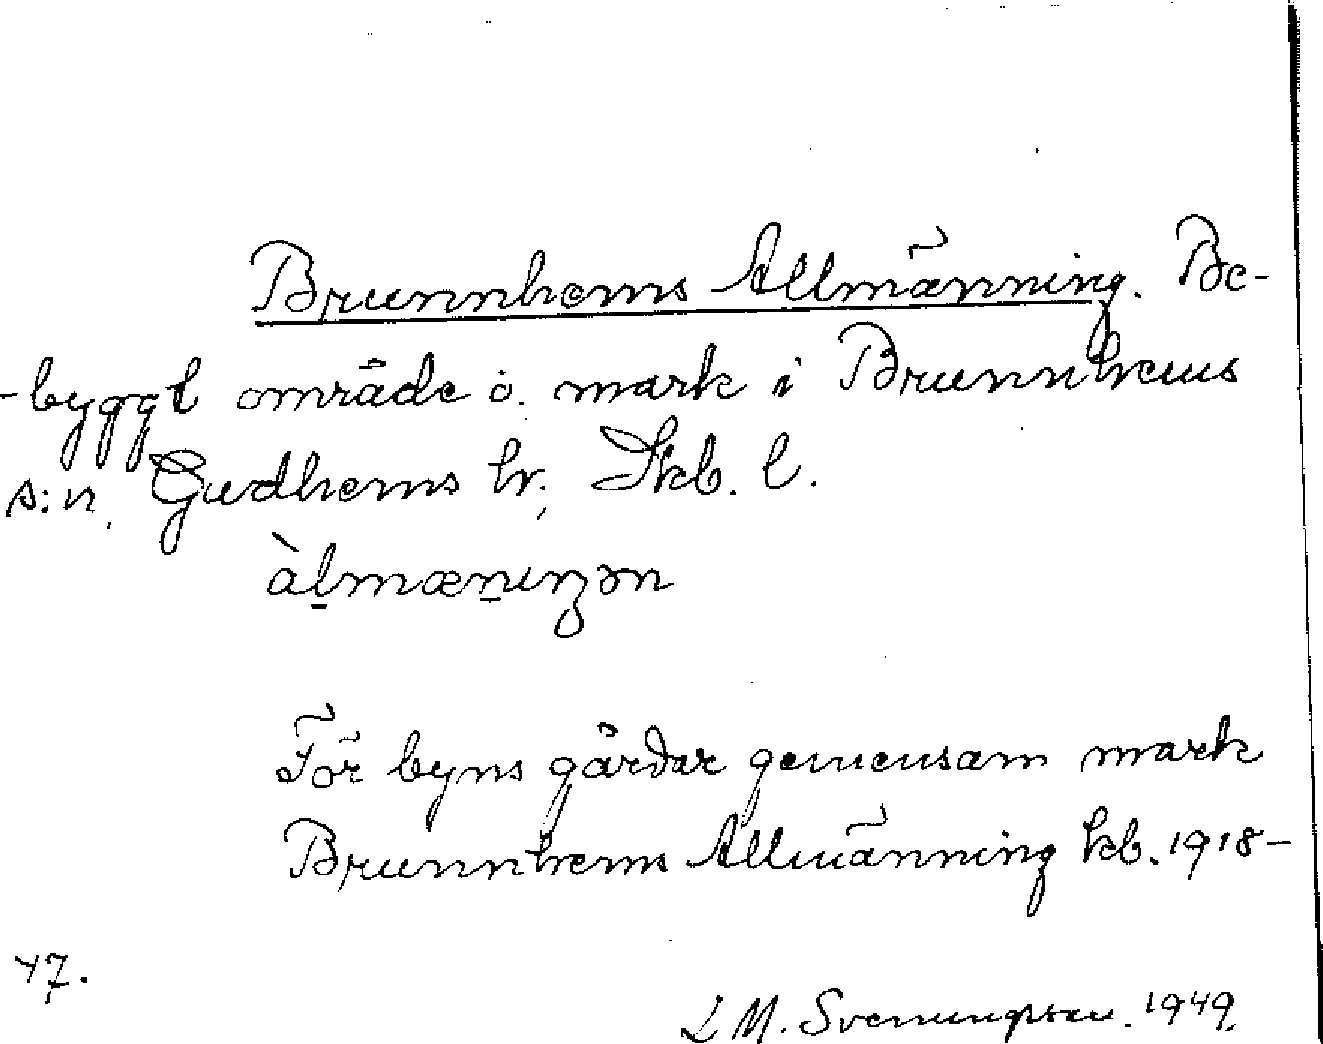 Brunnhems Allmänning. Be-
-byggt område o. mark i Brunnhems
s:n, Gudhems hr, Skb. l.
àl̠mæn̠ɩŋən
För byns gårdar gemensam mark
Brunnhems Allmänning kb. 1918-
47.
L M. Svenungsson. 1949.